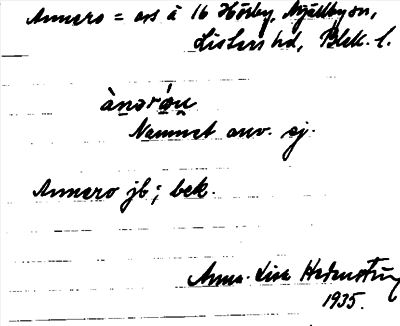 Annero = ers å 16 Hörby, Mjällbysn,
Listers hd, Blek. l.
ànərón
Namnet anv. ej.
Annero jb; bek.
Anna-Lisa
1935.